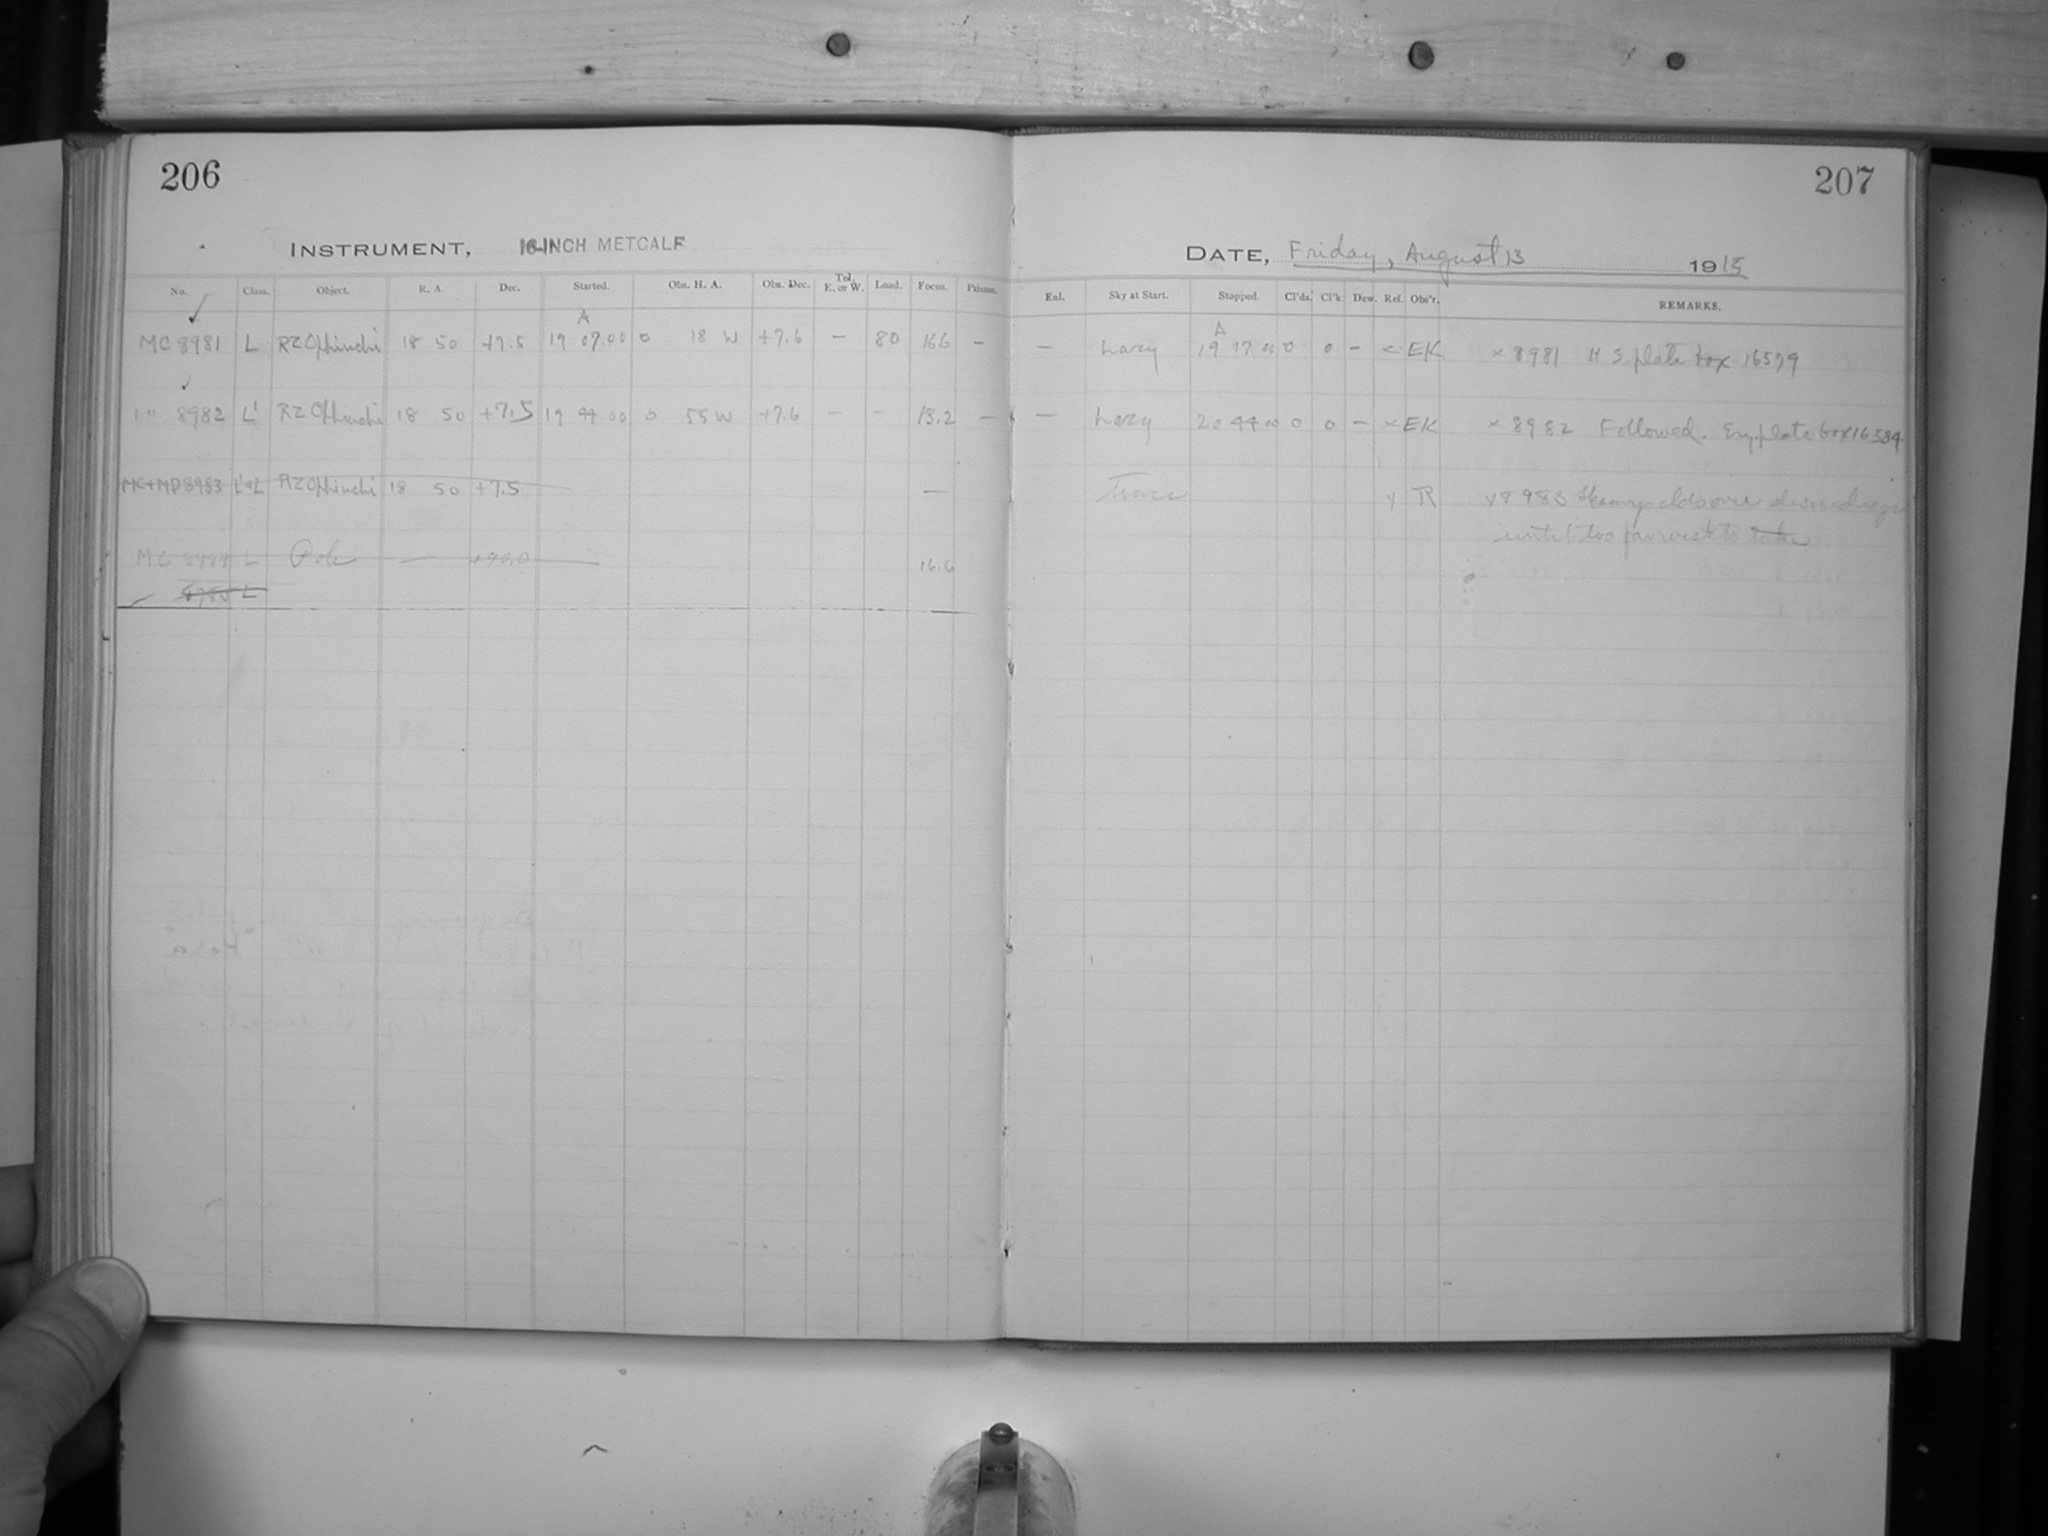 206
INSTRUMENT, 16-INCH METCALF
No. Class. Object. R. A. Dec. Started. Obs. H. A. Obs. Dec. Tel. E. or W. Load. Focus. Prisms.
MC 8981 L RZ Ophiuchi 18 50 +7.5 19 07.00 0 18 W +7.6 — 80 16.6 —
" " 8982 L' RZ Ophiuchi 18 50 +7.5 19 44 00 0 55 W +7.6 — - 13.2 —
MC+MD 8983 L'+L RZ Ophiuchi 18 50 +7.5 —
MC 8984 L Pole — +90.0 16.6
8985 L
207
DATE, Friday, August 13 1915
Enl. Sky at Start. Stopped. Cl'ds. Cl'k Dew. Ref. Obs'r. REMARKS.
— hazy A 19 17 00 0 0 - × EK × 8981 H S. plate box 16579
— hazy 20 44 00 0 0 — × EK × 8982 Followed. plate box 16584
R 8983 over desired region
until too far west to take.